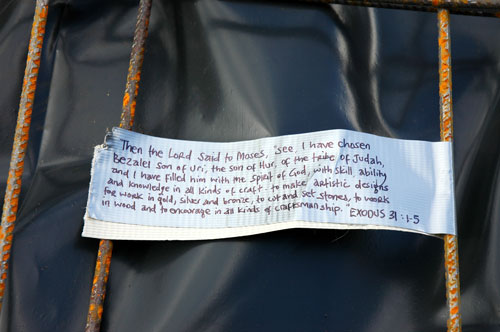 Then the Lord said to Moses, 'See, I have chosen
Bezalel son of Uri, the son of Hur, of the tribe of Judah,
and I have filled him with the Spirit of God, with skill ability
and knowledge in all kinds of craft - to make artistic designs
for work in gold, silver and bronze, to cut and set stones, to work
in wood and to encourage in all kinds of craftsmanship." EXODUS 31:1-5